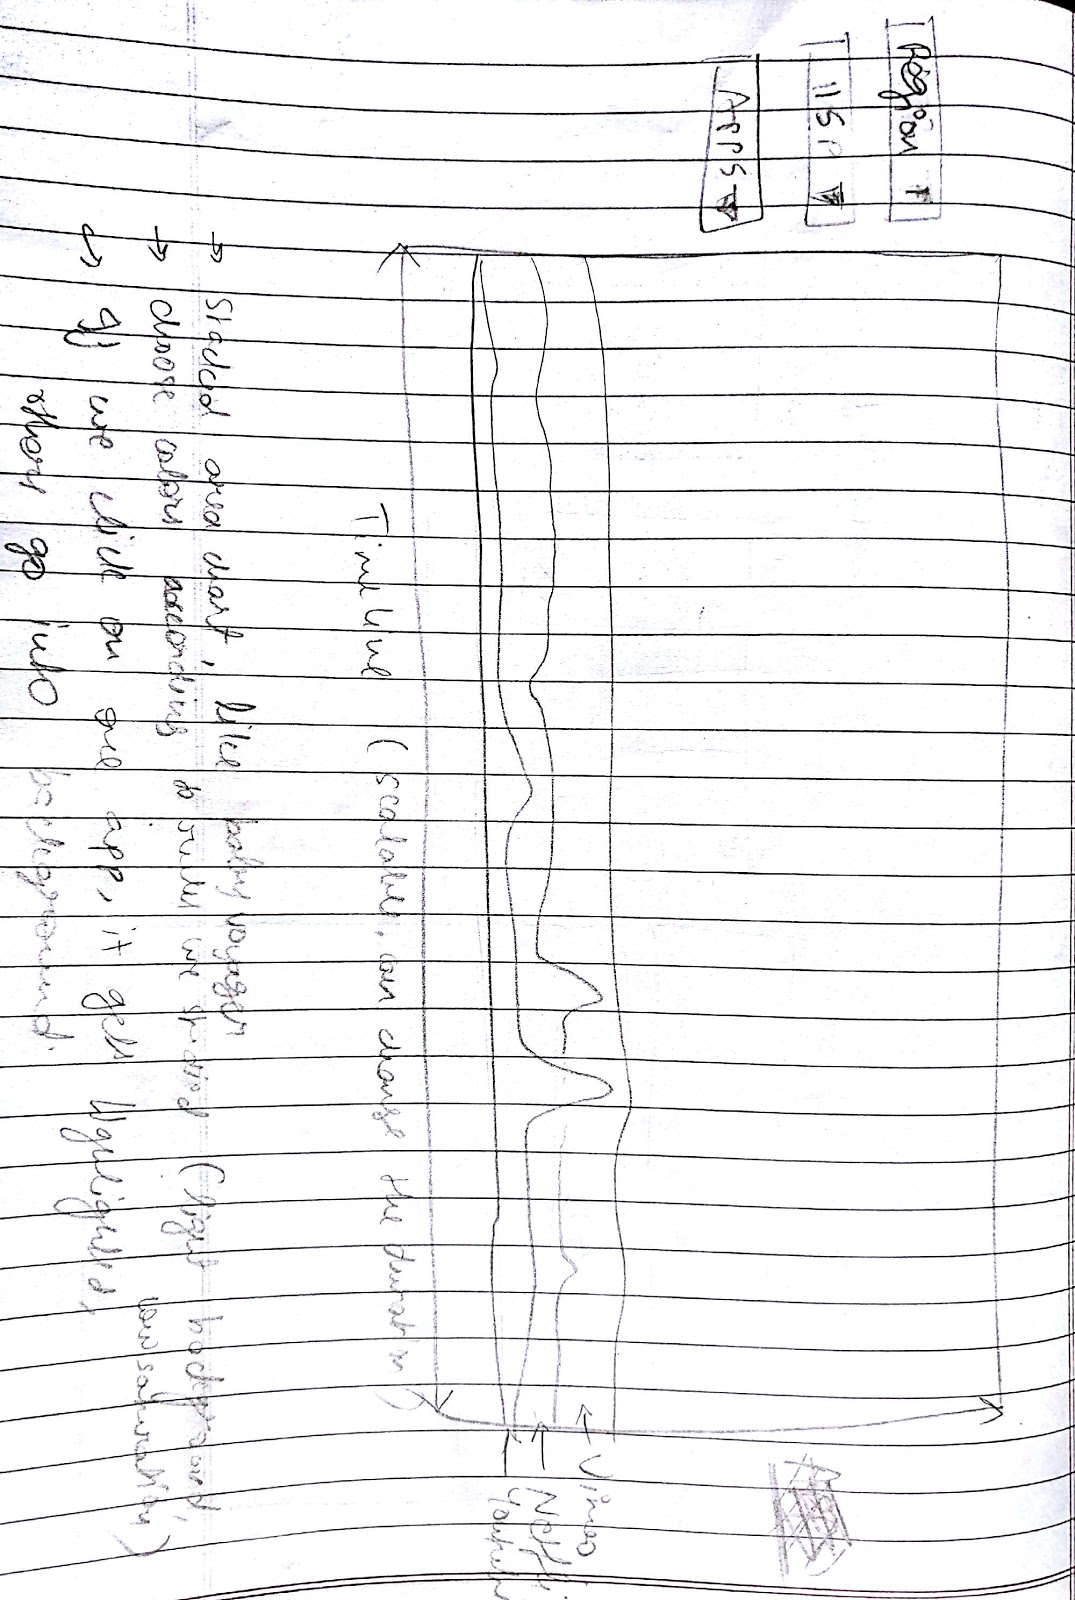 Region
ISP
APPS
Vimeo
Netfli
Youtube
Timeline (scalable, can change the duration)
→ Stacked area chart, like baby voyager
→ choose colors according to rules we studied (light background, low saturation)
→ If we click on one app, it gets highlighted,
others go into background.